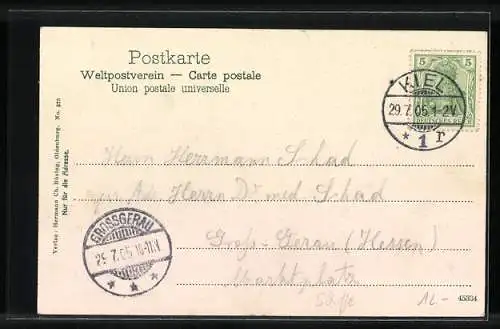 Postkarte
Weltpostverein — Carte postale
Union postale universelle
5 5
DEUTSCHES REICH
KIEL
29.7.05 1-2N
* 1 r
Verlag: Hermann Ch. Büsing, Oldenburg. No. 921
Nur für die Adresse.
Herrn Herrmann Schad
Herrn Dr med. Schad
Groß-Gerau (Hessen)
Marktplatz
GROSSGERAU
29.7.05 10-11N
* * *
12-
45334